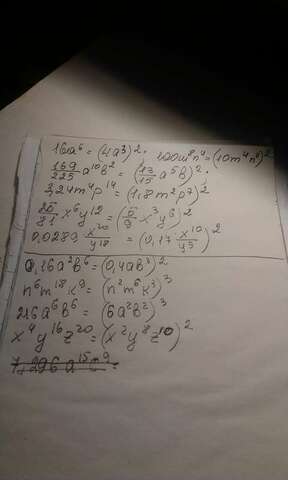 16a⁶ = (4a³)². 100m⁸n⁴=(10m⁴n²)²
169/225 a¹⁰b² = (13/15 a⁵b)².
3,24m⁴p¹⁴ = (1,8m²p⁷)²
25/81 x⁶y¹² = (5/9 x³y⁶)²
0,0289 x²⁰/y¹⁸ = (0,17 x¹⁰/y⁹)²
0,16a²b⁶ = (0,4ab³)²
n⁶m¹⁸k⁹ = (n²m⁶k³)³
216a⁶b⁶ = (6a²b²)³
x⁴y¹⁶z²⁰ = (x²y⁸z¹⁰)²